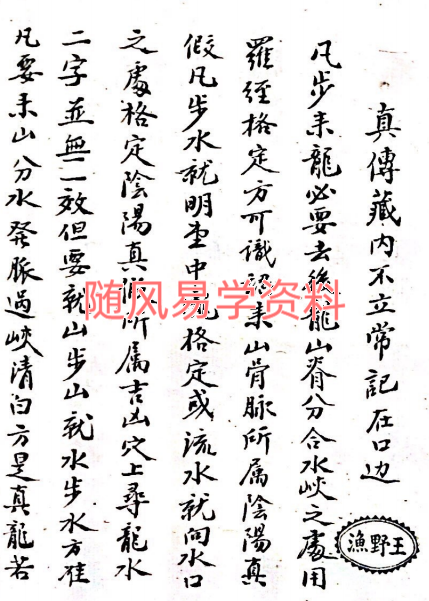 真傳藏内不立常記在口边
凡步来龍必要去後龍山脊分合水峽之處用
羅經格定方可識認来山骨脉所属陰陽真
假凡步水就明堂中先格定或流水就向水口
之處格定陰陽真假所属吉凶穴上尋龍水
二字並無一效但要就山步山就水步水方准
凡要来山分水發脈過峽清白方是真龍若
随风易学资料
漁野王